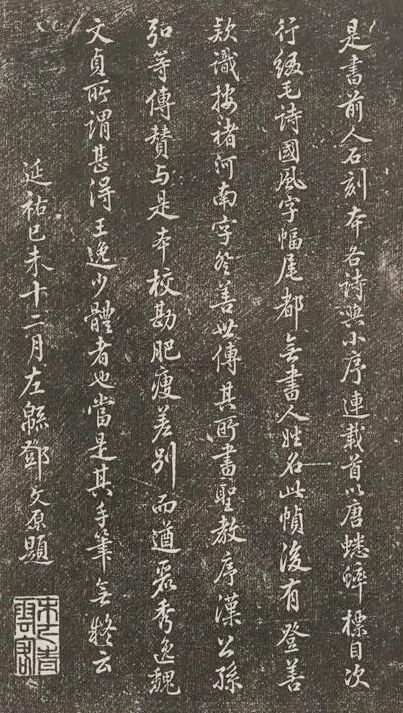 是書前人石刻本各詩與小序連載首以唐蟋蟀標目次
行綴毛詩國風字幅尾都無書人姓名此幀後有登善
款識按褚河南字登善世傳其所書聖教序漢公孫
弘等傳贊与是本校勘肥瘦差別而遒麗秀逸魏
文貞所謂甚得王逸少體者也當是其手筆無疑云
延祐己未十二月左緜鄧文原題